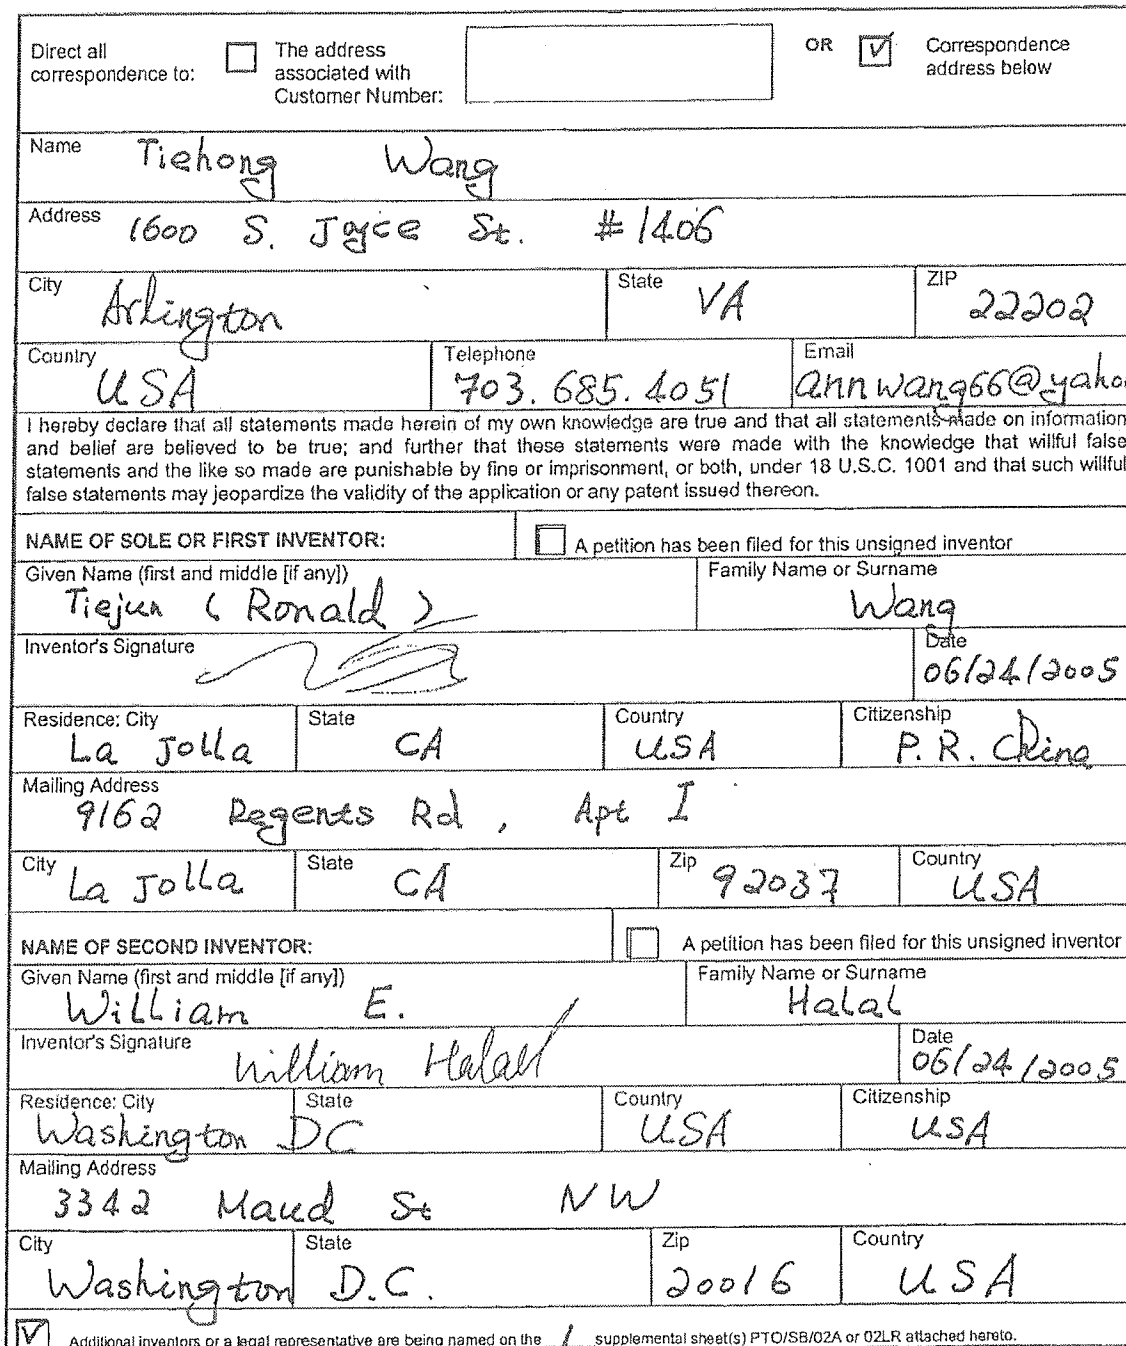 Direct all correspondence to: ☐ The address associated with Customer Number: OR ☑ Correspondence address below
Name Tiehong Wang
Address 1600 S. Joyce St. #1406
City Arlington State VA ZIP 22202
Country USA Telephone 703.685.4051 Email annwang66@yaho
I hereby declare that all statements made herein of my own knowledge are true and that all statements made on information
and belief are believed to be true; and further that these statements were made with the knowledge that willful false
statements and the like so made are punishable by fine or imprisonment, or both, under 18 U.S.C. 1001 and that such willful
false statements may jeopardize the validity of the application or any patent issued thereon.
NAME OF SOLE OR FIRST INVENTOR: ☐ A petition has been filed for this unsigned inventor
Given Name (first and middle [if any]) Family Name or Surname
Tiejun (Ronald) Wang
Inventor's Signature Date
06/24/2005
Residence: City State Country Citizenship
La Jolla CA USA P.R. China
Mailing Address
9162 Regents Rd, Apt I
City La Jolla State CA Zip 92037 Country USA
NAME OF SECOND INVENTOR: ☐ A petition has been filed for this unsigned inventor
Given Name (first and middle [if any]) Family Name or Surname
William E. Halal
Inventor's Signature William Halal Date
06/24/2005
Residence: City State Country Citizenship
Washington DC USA USA
Mailing Address
3342 Maud St NW
City State Zip Country
Washington D.C. 20016 USA
☑ Additional inventors or a legal representative are being named on the 1 supplemental sheet(s) PTO/SB/02A or 02LR attached hereto.